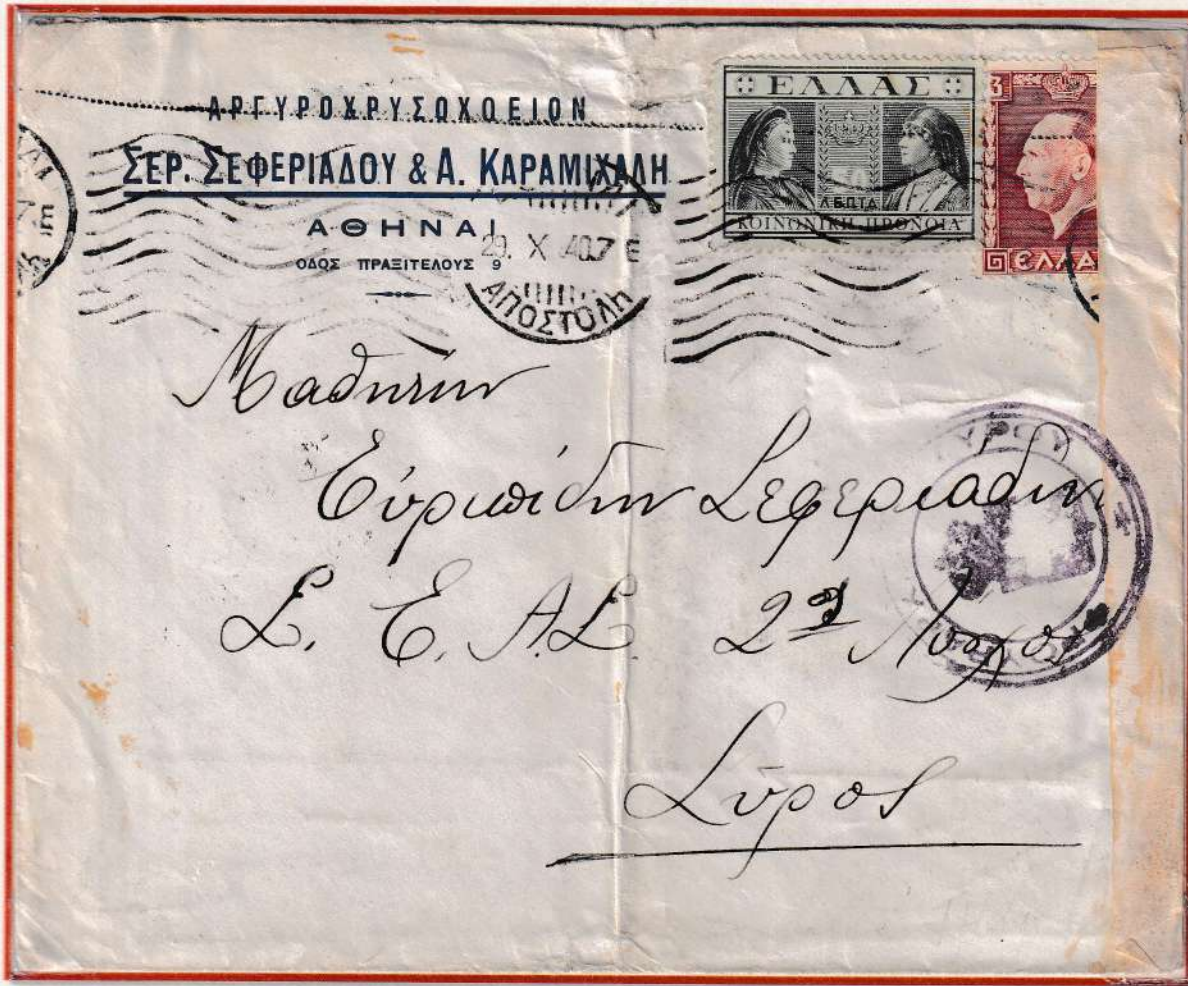 ΑΡΓΥΡΟΧΡΥΣΟΧΟΕΙΟΝ
ΣΕΡ. ΣΕΦΕΡΙΑΔΟΥ & Α. ΚΑΡΑΜΙΧΑΛΗ
ΑΘΗΝΑΙ
ΟΔΟΣ ΠΡΑΞΙΤΕΛΟΥΣ 9
29. X 40.7 Ε
ΑΠΟΣΤΟΛΗ
ΕΛΛΑΣ
50
ΛΕΠΤΑ
ΚΟΙΝΩΝΙΚΗ ΠΡΟΝΟΙΑ
3
ΕΛΛΑ
Μαθητήν
Εὐριπίδην Σεφεριάδην
Σ. Ε. Α.Σ. 2ος Λόχος
Σύρος